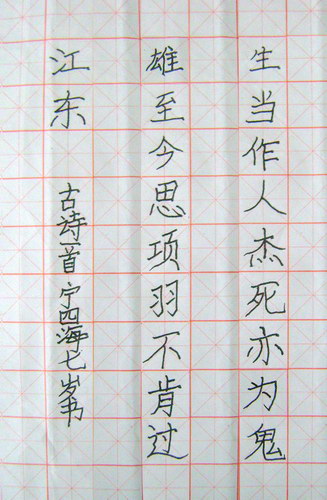 生当作人杰死亦为鬼
雄至今思项羽不肯过
江东
古诗一首 宁四海七岁书